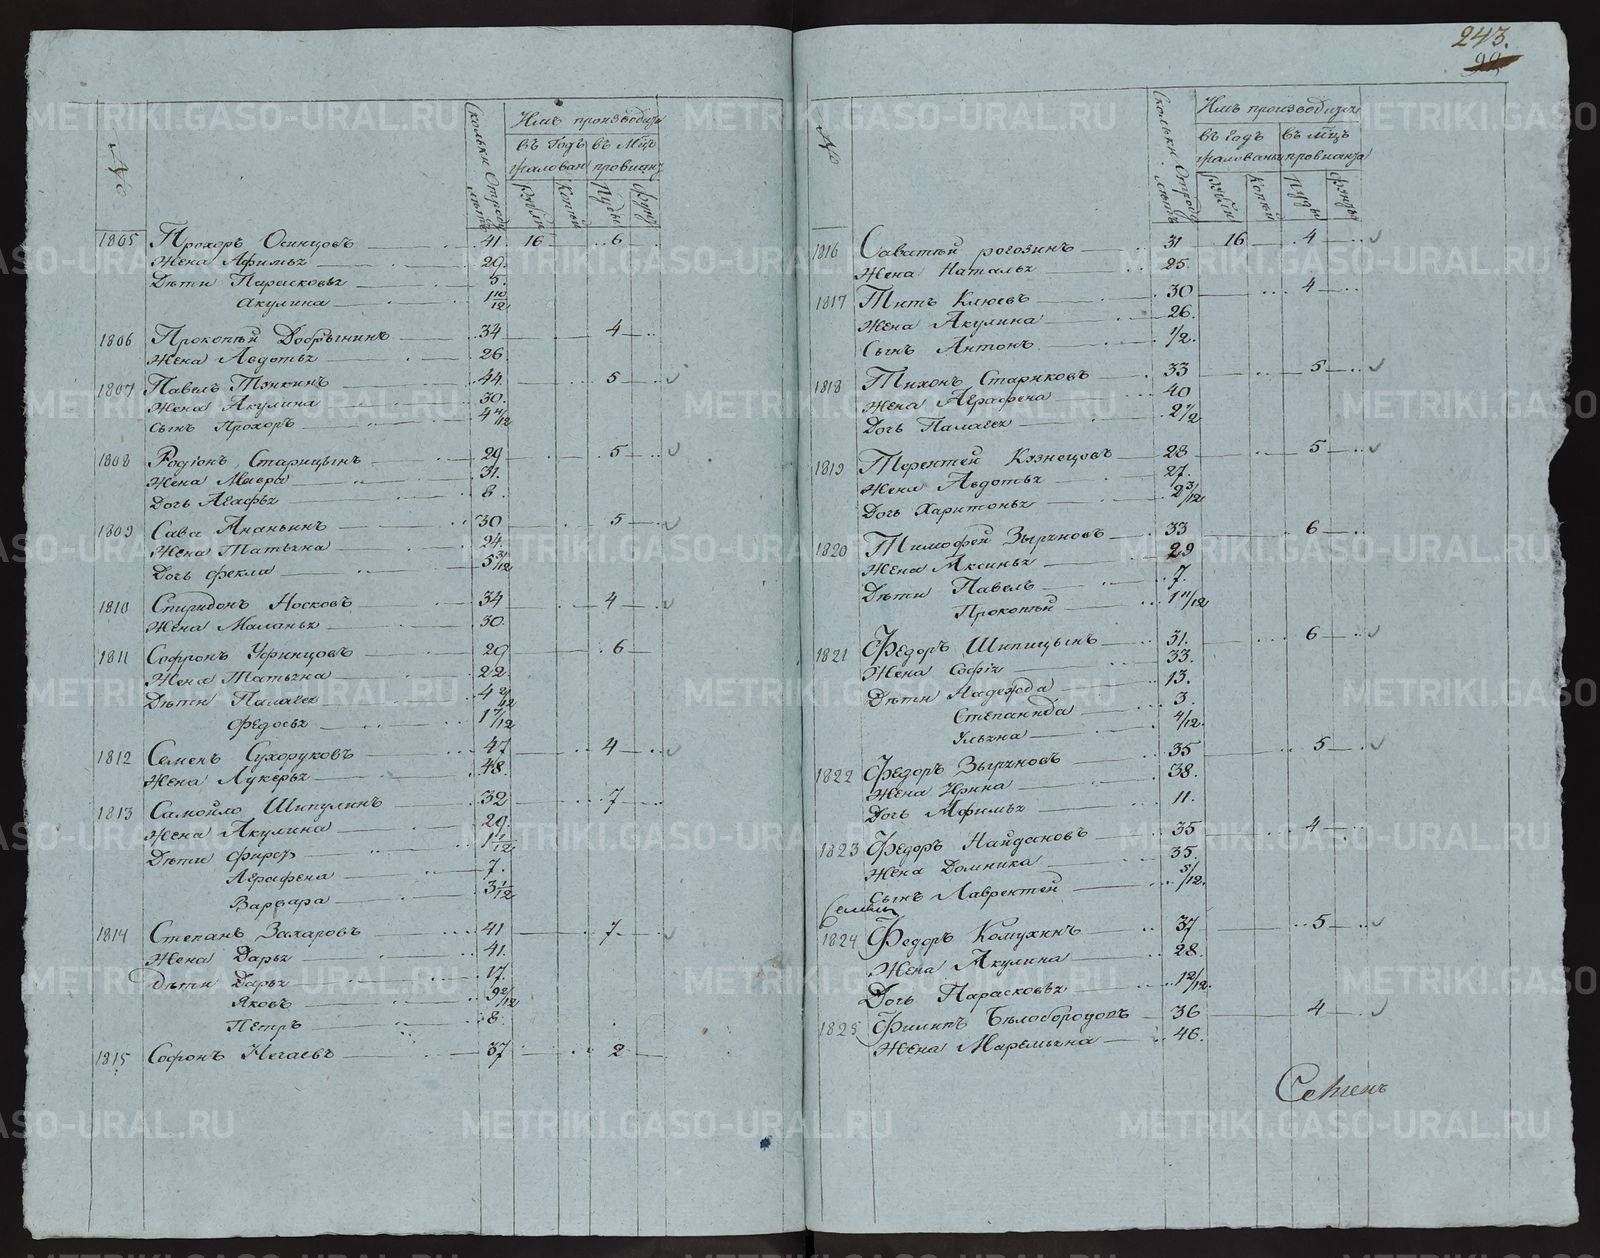 243.
22
№
Сколько Отроду лѣтъ
Имъ производится
въ Годъ жалован
въ Мцъ провиянт
Рубли
Копей
Пуды
Фунт
1805 Прохоръ Осинцовъ 41. 16 6
Жена Афимья 29.
Дѣти Парасковья 5.
Акулина 1 10/12
1806 Прокопѣй Добрынинъ 34 4
Жена Авдотья 26
1807 Павелъ Тянкинъ 44. 5
Жена Акулина 30.
Сынъ Прохоръ 4 4/12
1808 Родіонъ Старицынъ 29 5
Жена Мавра 31.
Дочь Агафья 8.
1809 Сава Ананьинъ 30 5
Жена Татьяна 24.
Дочь Фекла 5 3/12
1810 Спиридонъ Носковъ 34 4
Жена Маланья 30.
1811 Софронъ Уфинцовъ 29 6
Жена Татьяна 22.
Дѣти Палагея 4 2/12
Федосья 1 7/12
1812 Семенъ Сухоруковъ 47 4
Жена Лукерья 48.
1813 Самойло Шипулинъ 32 7
Жена Акулина 29.
Дѣти Фирсъ 1 1/12
Аграфена 7.
Варвара 3 1/12
1814 Степанъ Захаровъ 41 7
Жена Дарья 41.
Дѣти Дарья 17.
Яковъ 9 2/12
Петръ 8.
1815 Софонъ Негаевъ 37 2
№
Сколько Отроду лѣтъ
Имъ производится
въ годъ жалованья
въ мцъ провианта
Рубли
Копей
Пуды
Фунты
1816 Саватѣй рогозинъ 31 16 4
Жена Наталья 25.
1817 Титъ Клюевъ 30 4
Жена Акулина 26.
Сынъ Антонъ 1/2.
1818 Тихонъ Стариковъ 33 5
Жена Аграфена 40
Дочь Палагея 2 1/2
1819 Терентей Кузнецовъ 28 5
Жена Авдотья 27.
Дочь Харитонья 2 3/12
1820 Тимофей Зыряновъ 33 6
Жена Аксинья 29
Дѣти Павелъ 7.
Прокопѣй 1 11/12
1821 Федоръ Шипицынъ 31. 6
Жена Софія 33.
Дѣти Надежда 13.
Степанида 3.
Ульяна 4/12.
1822 Федоръ Зыряновъ 35 5
Жена Ирина 38.
Дочь Афимья 11.
1823 Федоръ Найдановъ 35 4
Жена Домника 35
Сынъ Лаврентей 5/12.
1824 Федоръ Комухинъ 37 5
Жена Акулина 28.
Дочь Парасковья 1 2/12.
1825 Филипъ Бѣлобородовъ 36 4
Жена Маремьяна 46.
METRIKI.GASO-URAL.RU